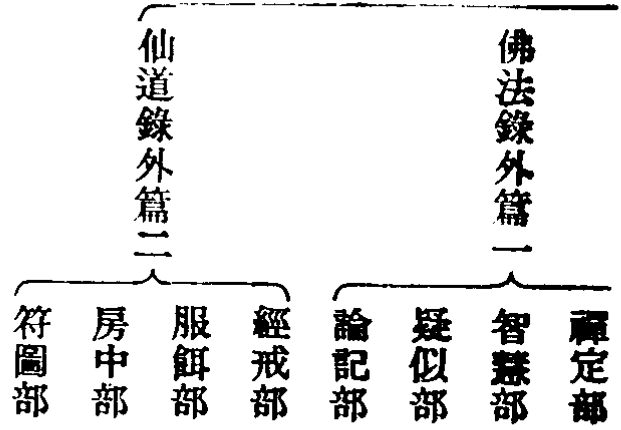 佛法錄外篇一
禪定部
智慧部
疑似部
論記部
仙道錄外篇二
經戒部
服餌部
房中部
符圖部